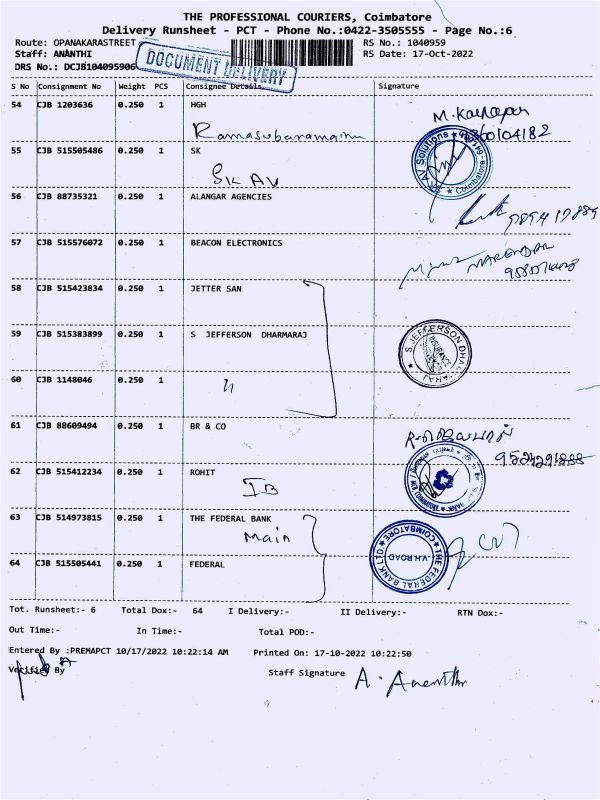 THE PROFESSIONAL COURIERS, Coimbatore
Delivery Runsheet - PCT - Phone No.:0422-3505555 - Page No.:6
Route: OPANAKARASTREET RS No.: 1040959
Staff: ANANTHI RS Date: 17-Oct-2022
DRS No.: DCJB104095906
DOCUMENT DELIVERY
S No Consignment No Weight PCS Consignee Details Signature
54 CJB 1203636 0.250 1 HGH
55 CJB 515505486 0.250 1 SK
SK AV
AV Solutions
Coimbatore
56 CJB 88735321 0.250 1 ALANGAR AGENCIES
57 CJB 515576072 0.250 1 BEACON ELECTRONICS
58 CJB 515423834 0.250 1 JETTER SAN
59 CJB 515383899 0.250 1 S JEFFERSON DHARMARAJ
S. JEFFERSON DHARMARAJ
60 CJB 1148046 0.250 1
61 CJB 88609494 0.250 1 BR & CO
62 CJB 515412234 0.250 1 ROHIT
IB
63 CJB 514973815 0.250 1 THE FEDERAL BANK
Main
THE FEDERAL BANK LTD
V.H. ROAD
COIMBATORE
64 CJB 515505441 0.250 1 FEDERAL
Tot. Runsheet:- 6 Total Dox:- 64 I Delivery:- II Delivery:- RTN Dox:-
Out Time:- In Time:- Total POD:-
Entered By :PREMAPCT 10/17/2022 10:22:14 AM Printed On: 17-10-2022 10:22:50
Verified By Staff Signature A. Ananthi